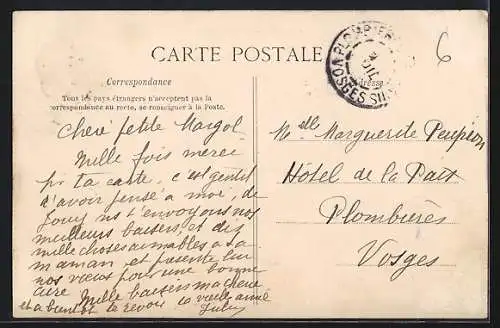 CARTE POSTALE
Correspondance
Tous les pays étrangers n'acceptent pas la
correspondance au recto, se renseigner à la Poste.
Adresse
PLOMBIÈRES
VOSGES
6
Chère petite Margot
Mille fois merci
pr ta carte, c'est gentil
d'avoir pensé à moi, de
ns t'envoyons nos
meilleurs baisers, et dis
mille choses aimables à ta
maman et présente lui
nos vœux pour une bonne
Mille baisers ma chérie
et à bientôt te revoir ta vieille amie
Melle Marguerite
Hôtel de la Paix
Plombières
Vosges